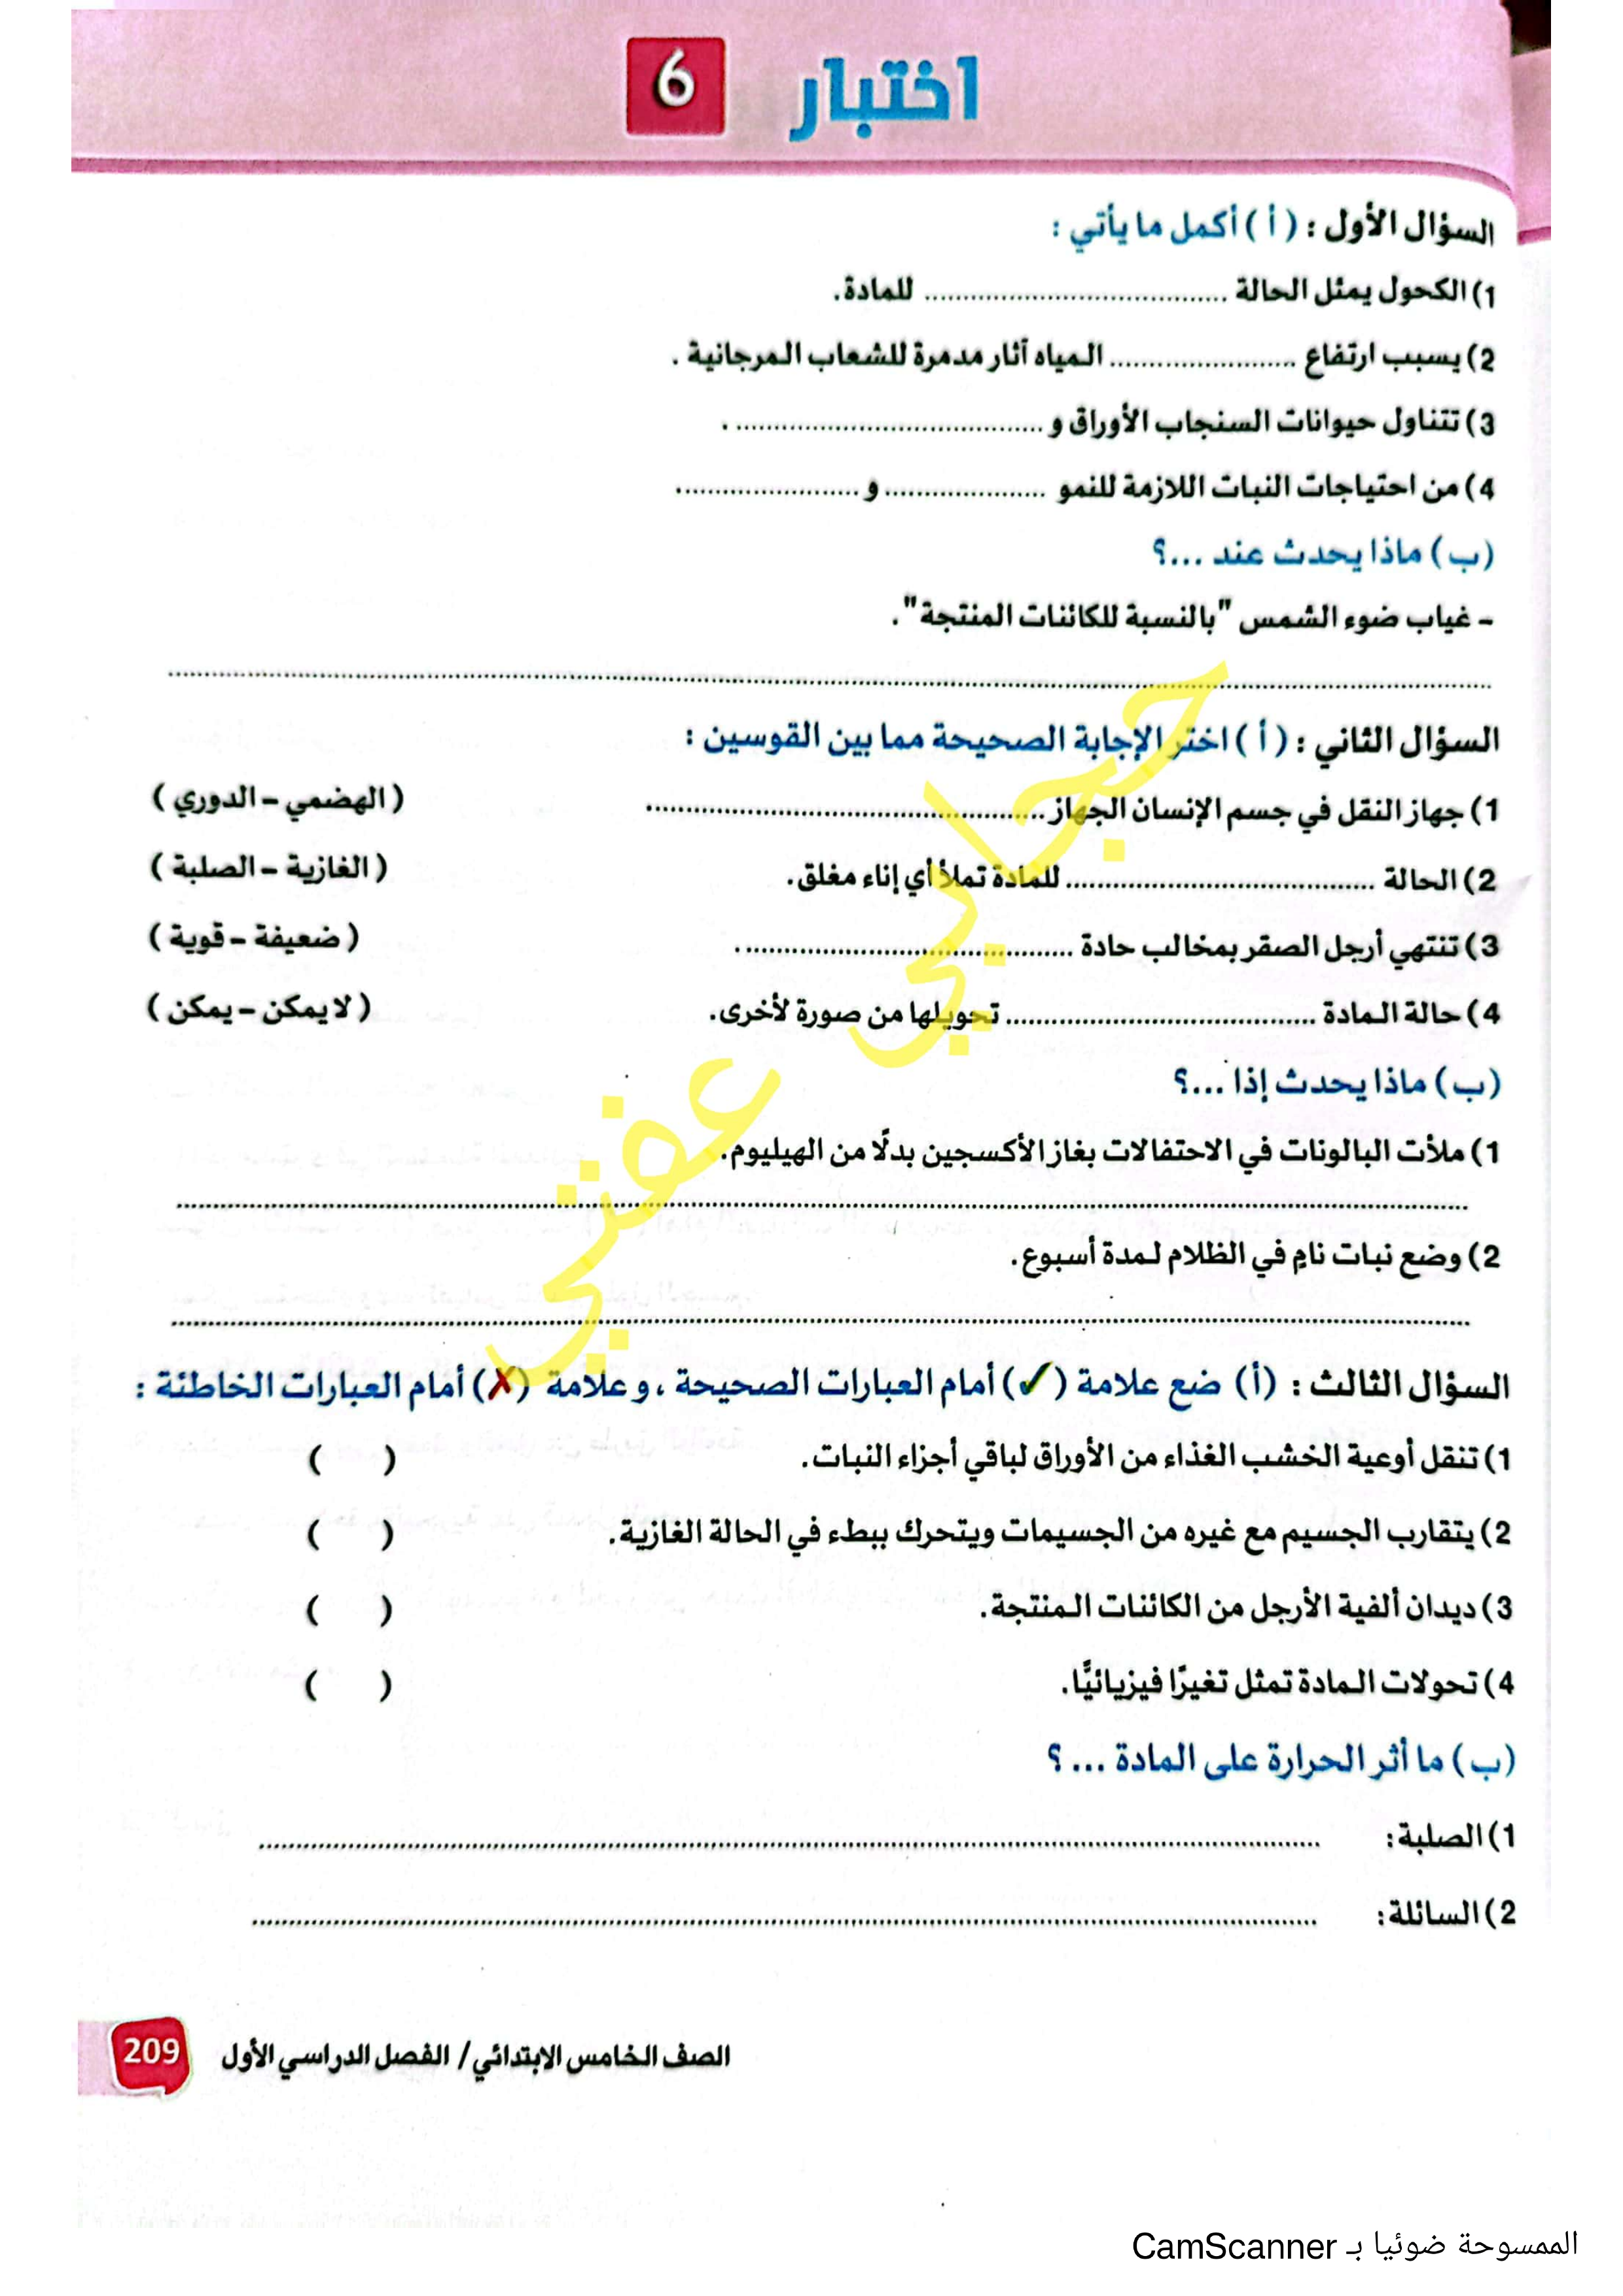 اختبار 6
السؤال الأول : ( أ ) أكمل ما يأتي :
1) الكحول يمثل الحالة ........................................ للمادة.
2) يسبب ارتفاع ........................ المياه آثار مدمرة للشعاب المرجانية .
3) تتناول حيوانات السنجاب الأوراق و ........................................ .
4) من احتياجات النبات اللازمة للنمو ..................... و ........................
(ب) ماذا يحدث عند ...؟
- غياب ضوء الشمس "بالنسبة للكائنات المنتجة".
السؤال الثاني : ( أ ) اختر الإجابة الصحيحة مما بين القوسين :
1) جهاز النقل في جسم الإنسان الجهاز .................................................... ( الهضمي – الدوري )
2) الحالة ........................................ للمادة تملأ أي إناء مغلق. ( الغازية – الصلبة )
3) تنتهي أرجل الصقر بمخالب حادة ........................................... . ( ضعيفة – قوية )
4) حالة المادة ........................................ تحويلها من صورة لأخرى. ( لا يمكن – يمكن )
(ب) ماذا يحدث إذا ...؟
1) ملأت البالونات في الاحتفالات بغاز الأكسجين بدلًا من الهيليوم.
2) وضع نبات نامٍ في الظلام لمدة أسبوع.
السؤال الثالث : (أ) ضع علامة (✓) أمام العبارات الصحيحة ، و علامة (✗) أمام العبارات الخاطئة :
1) تنقل أوعية الخشب الغذاء من الأوراق لباقي أجزاء النبات. ( )
2) يتقارب الجسيم مع غيره من الجسيمات ويتحرك ببطء في الحالة الغازية. ( )
3) ديدان ألفية الأرجل من الكائنات المنتجة. ( )
4) تحولات المادة تمثل تغيرًا فيزيائيًّا. ( )
(ب) ما أثر الحرارة على المادة ... ؟
1) الصلبة: ........................................
2) السائلة: ........................................
الصف الخامس الابتدائي/ الفصل الدراسي الأول 209
الممسوحة ضوئيا بـ CamScanner